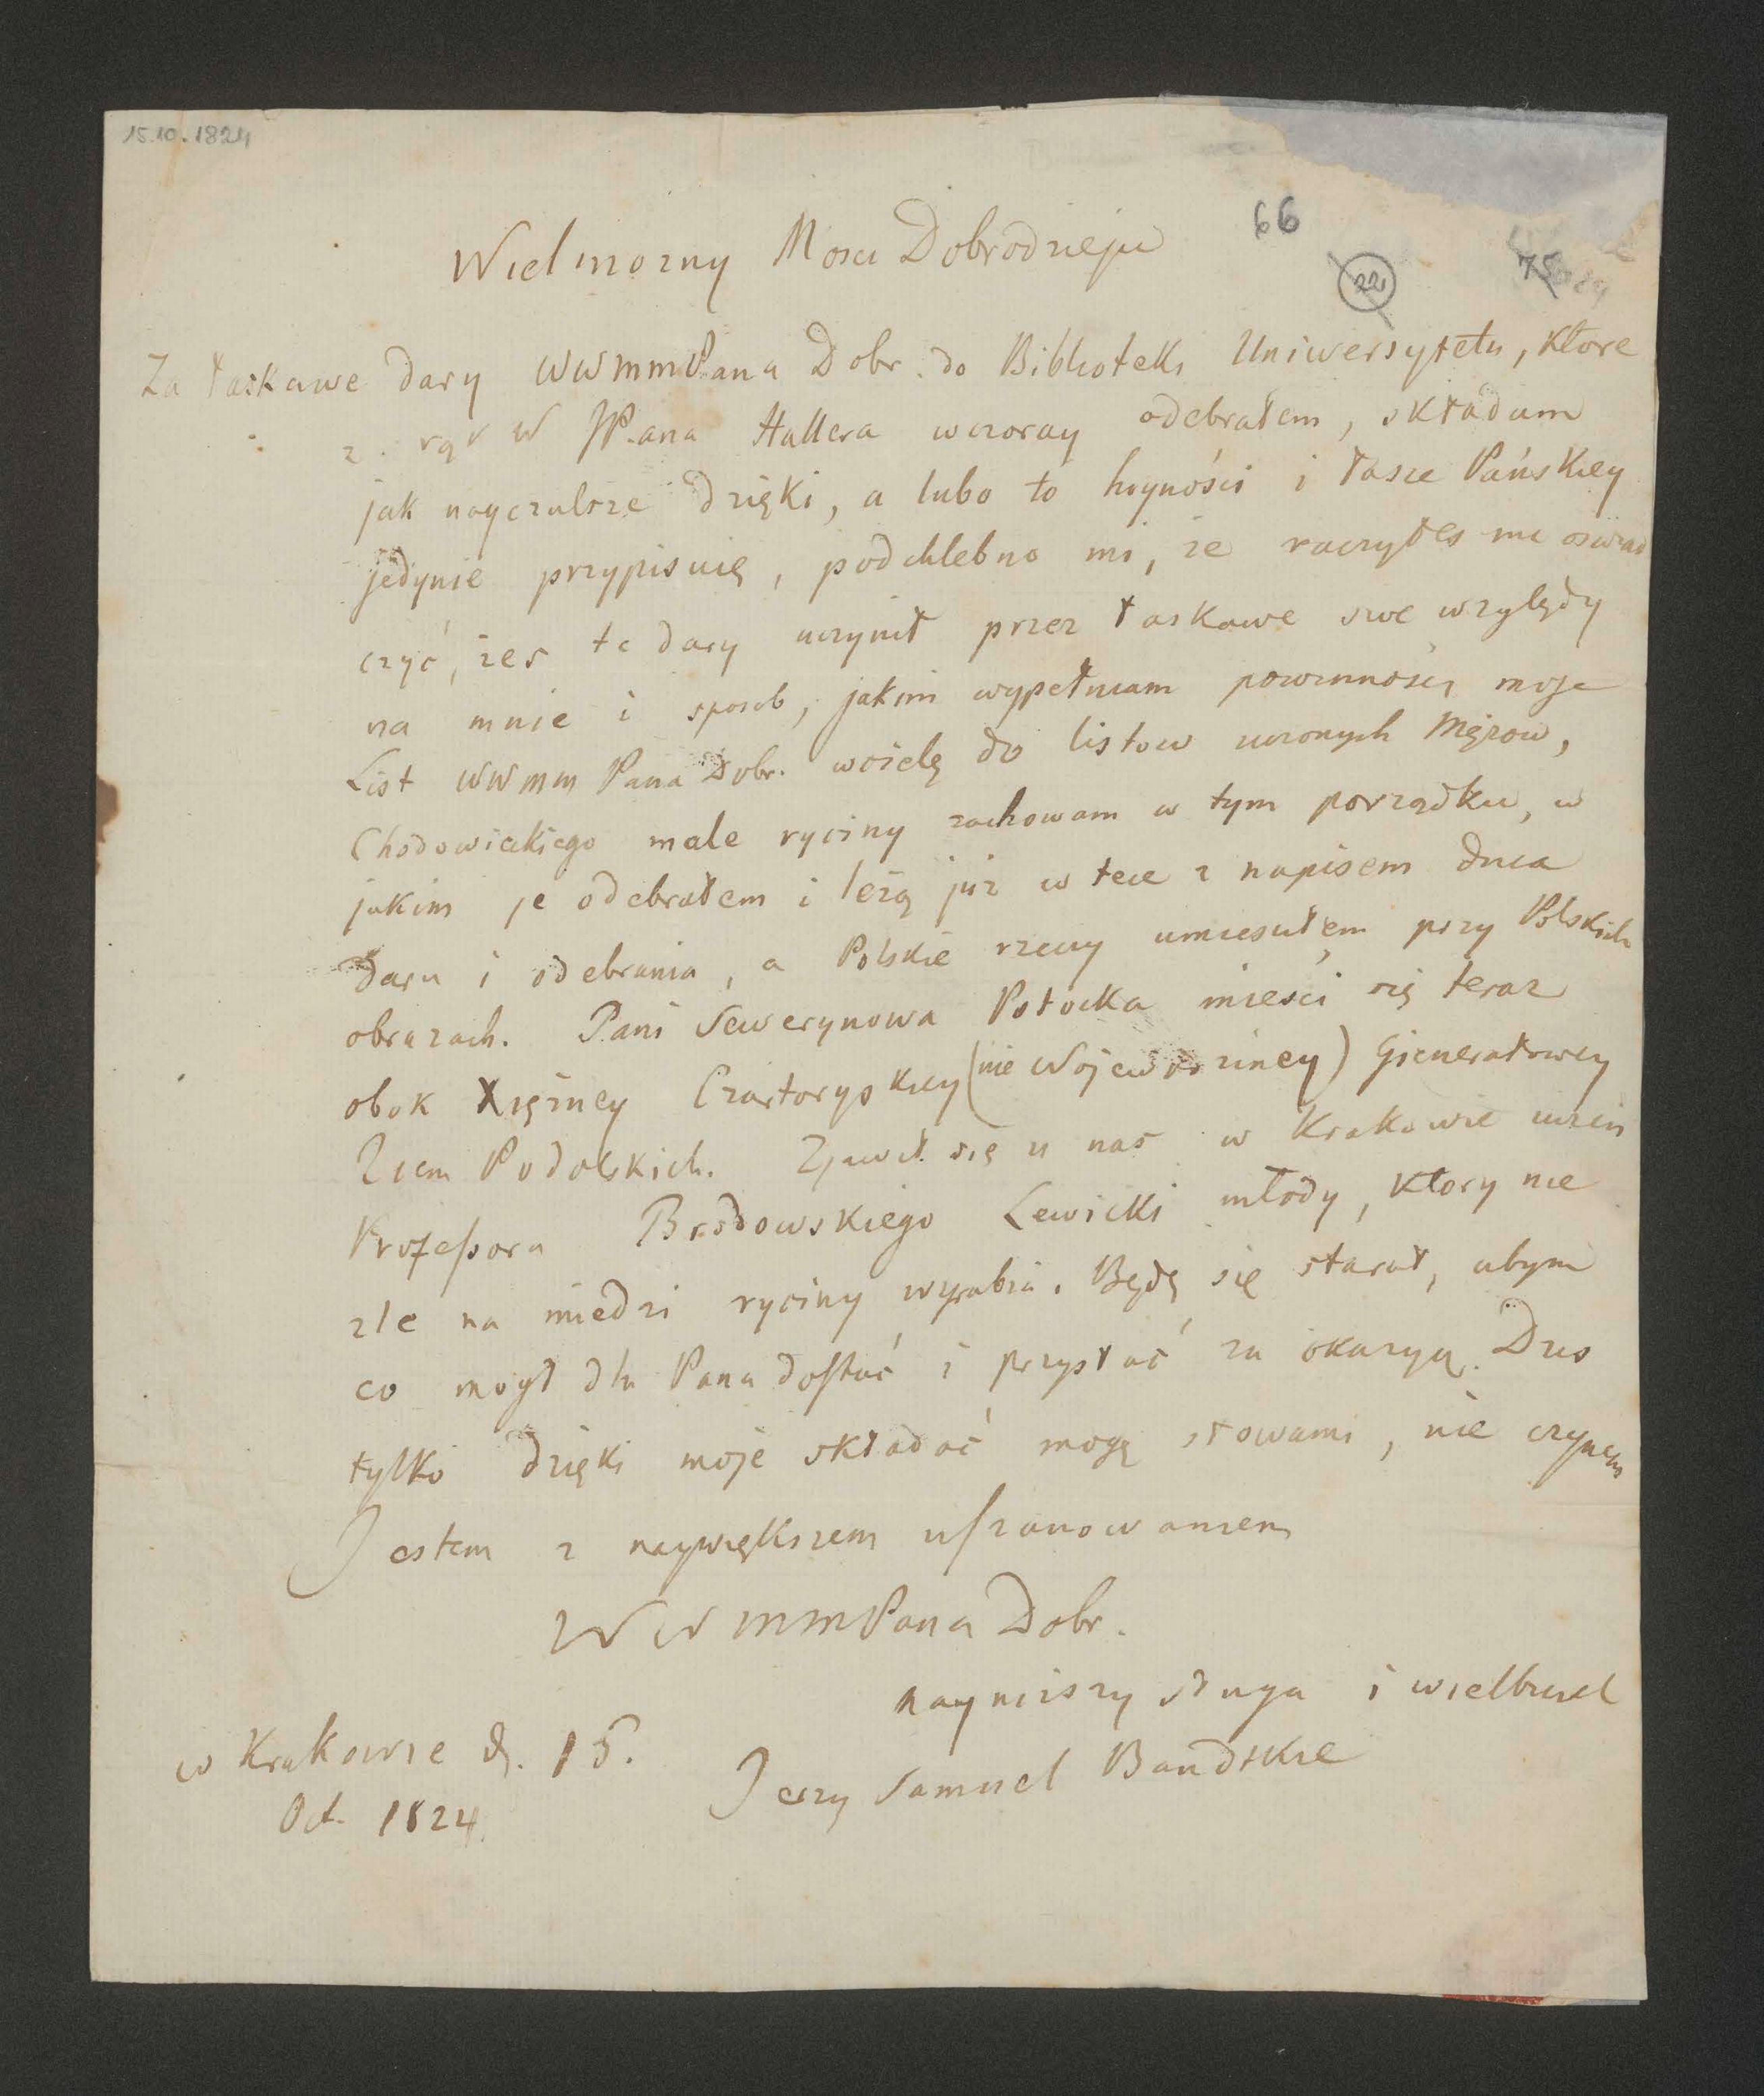 15.10.1824
66
22
75
Wielmozny Mosci Dobrodzieju
Za łaskawe dary WWMMPana Dobr. do Biblioteki Uniwersytetu, ktore
z rąk W JPana Hallera wczoray odebrałem, składam
jak nayczulsze dzięki, a lubo to hoyności i łasce Pańskiey
jedynie przypisuię, podchlebno mi, ze raczyłes mi oswiad
czyć, zes te dary uczynił przez łaskawe swe względy
na mnie i sposob, jakim wypełniam powinności moje
List WWMM Pana Dobr. wcielę do listow uczonych Męzow,
Chodowieckiego małe ryciny zachowam w tym porządku, w
jakim je odebrałem i leżą juz w tece z napisem dnia
daru i odebrania, a Polskie rzeczy umiesciłem przy Polskich
obrazach. Pani Sewerynowa Potocka miesci się teraz
obok Xiężney Czartoryskiey (nie Wojewodziney) Gieneratowey
Ziem Podolskich. Zjawił się u nas w Krakowie uczeń
Professora Brodowskiego Lewicki młody, ktory nie
zle na miedzi ryciny wyrabia. Będę się starał, abym
co mogł dla Pana dostać i przysłać za okazyą. Dzis
tylko dzięki moje składać mogę słowami, nie czynem
Jestem z naywiększem uszanowaniem
WWMMPana Dobr.
nayniższy sługa i wielbiciel
w Krakowie d. 15. Jerzy Samuel Bandtkie
Oct. 1824.